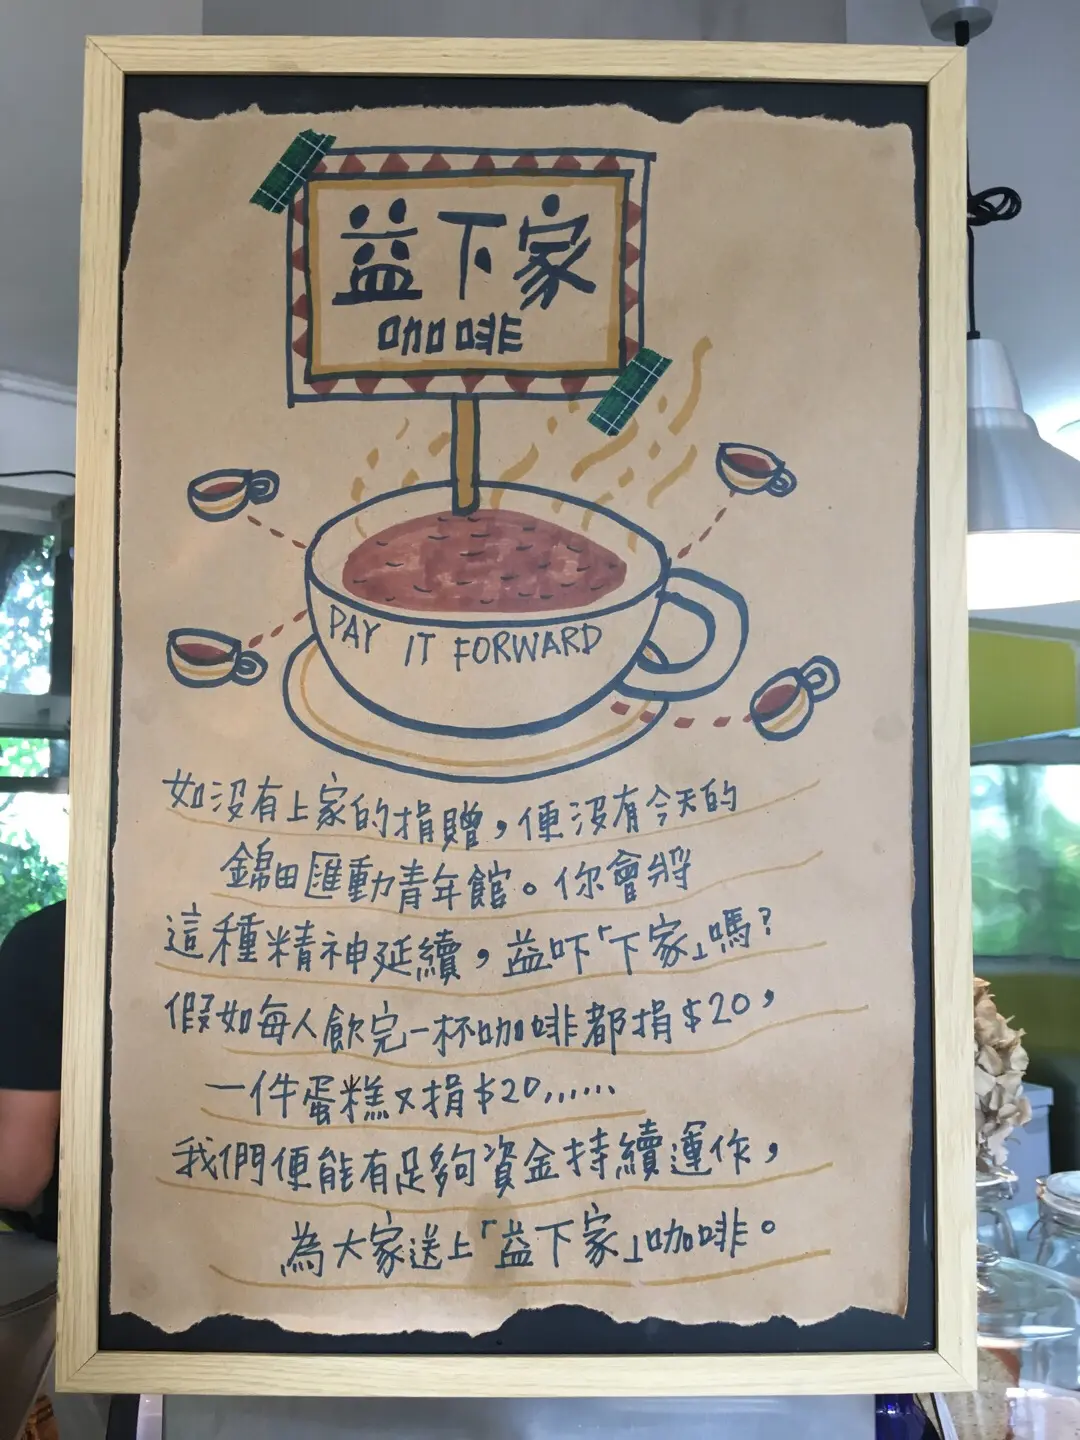 益下家
咖啡
PAY IT FORWARD
如沒有上家的捐贈，便沒有今天的
錦田匯動青年館。你會將
這種精神延續，益吓「下家」嗎？
假如每人飲完一杯咖啡都捐$20，
一件蛋糕又捐$20......
我們便能有足夠資金持續運作，
為大家送上「益下家」咖啡。